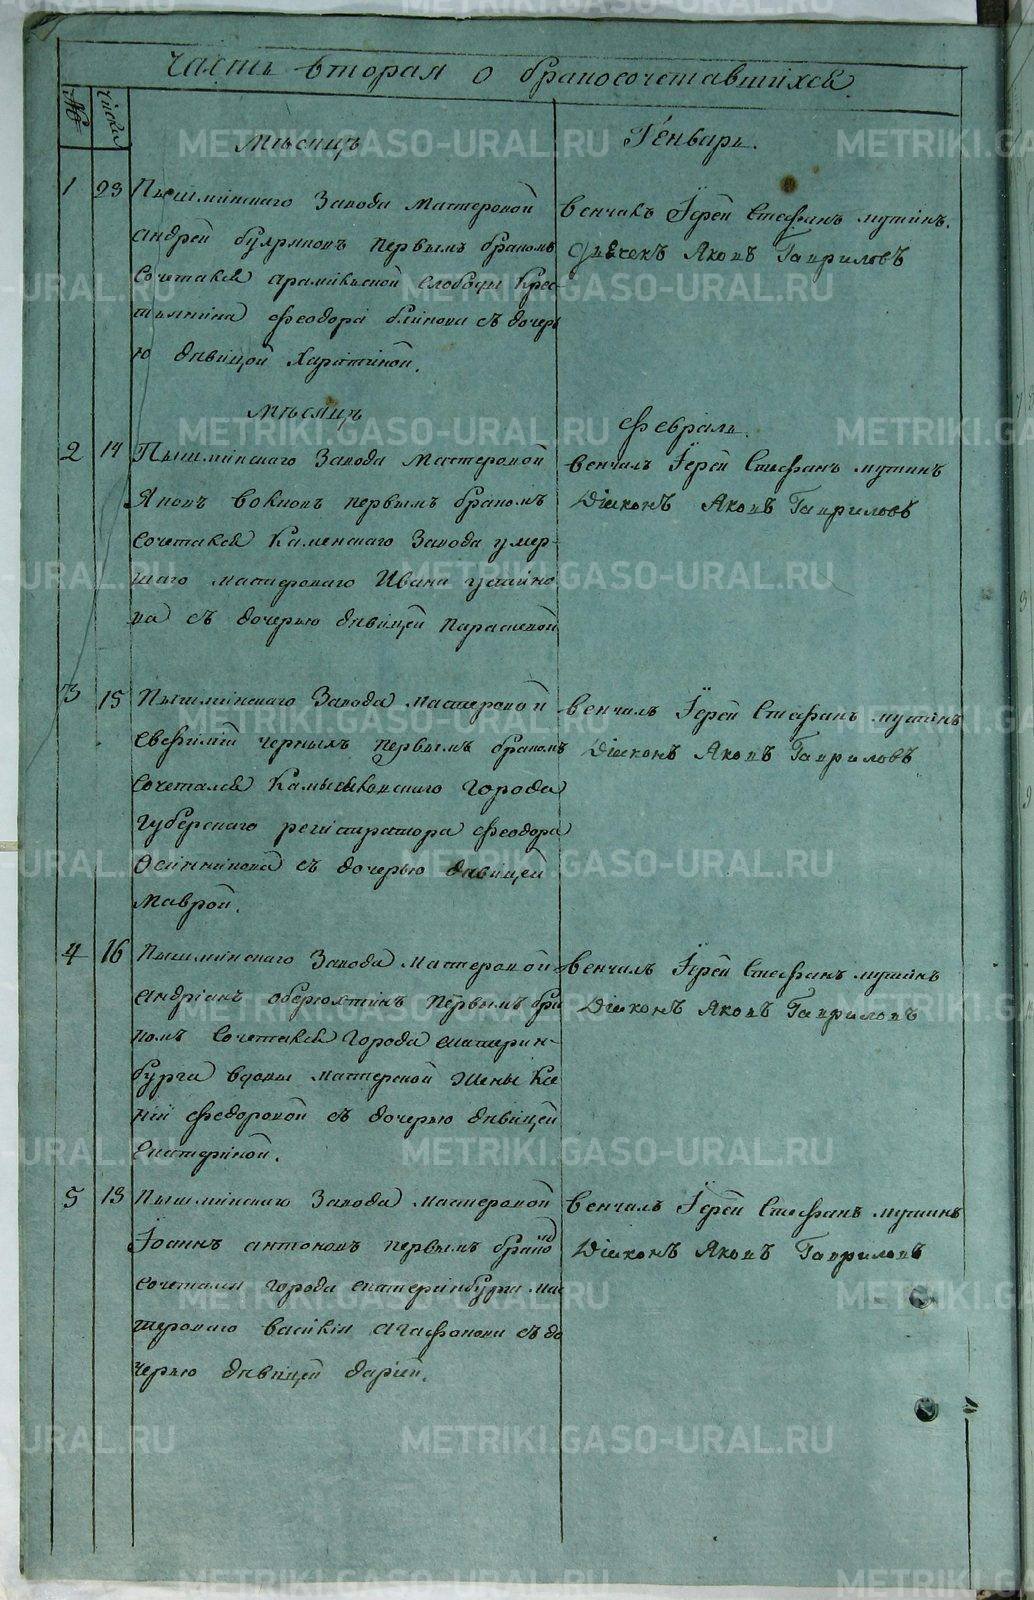 Часть вторая о бракосочетавшихся
№
числа
Мѣсяцъ
Генварь.
1 23 Пышминскаго Завода мастеровой
Андрей буярковъ первымъ бракомъ
сочетался арамильской слободы крес-
тьянина Феодора блинова съ дочерь
ю дѣвицой Харитиной.
венчалъ Іерей Стефанъ мутинъ.
дьячекъ Яковъ Гавриловъ
Мѣсяцъ
Февраль.
2 14 Пышминскаго Завода Мастеровой
Яковъ Воковъ первымъ бракомъ
сочетался Каменскаго Завода умер-
шаго мастероваго Ивана устино
ва съ дочерью дѣвицей параскевой
венчалъ Іерей Стефанъ мутинъ
Діяконъ Яковъ Гавриловъ
3 15 Пышминскаго Завода мастеровой
Евфимій черныхъ первымъ бракомъ
сочетался Камышловскаго города
губерскаго регистратора Феодора
Осинникова съ дочерью дѣвицей
Маврой.
венчалъ Іерей Стефанъ мутинъ
Діяконъ Яковъ Гавриловъ
4 16 Пышминскаго Завода мастеровой
андріанъ оберюхтинъ первымъ бра
комъ сочетался города екатерин-
бурга вдовы мастерской жены Ксе
ніи Федоровой съ дочерью дѣвицей
Екатериной.
венчалъ Іерей Стефанъ мутинъ
Діяконъ Яковъ Гавриловъ
5 13 Пышминскаго Завода мастеровой
Іоаннъ антоновъ первымъ бракомъ
сочетался города екатеринбурга мас
тероваго василія агафонова съ до
черью дѣвицей даріей.
венчалъ Іерей Стефанъ мутинъ
Діяконъ Яковъ Гавриловъ
METRIKI.GASO-URAL.RU